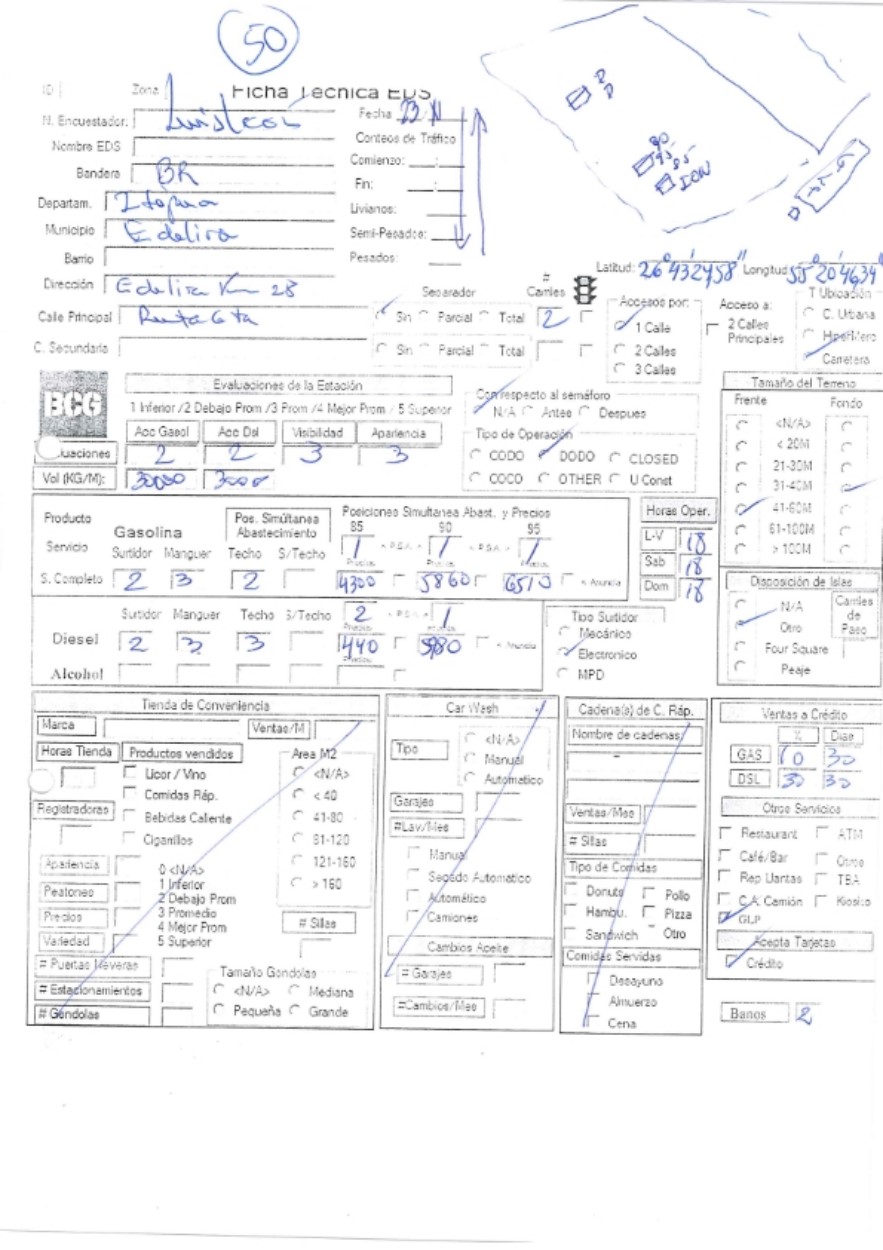 50
ID Zona Ficha Tecnica EDS
N. Encuestador: Luis Leon Fecha 23 N
Nombre EDS Conteos de Tráfico
Bandera BR Comienzo: :
Departam. Itapua Fin: :
Livianos:
Municipio Edelira Semi-Pesados:
Barrio Pesados:
Dirección Edelira Km 28
Latitud: 26° 43' 2458" Longitud 55° 20' 4634"
Calle Principal Ruta 6ta
C. Secundaria
Separador # Carriles
Sin Parcial Total 2
Sin Parcial Total
Accesos por:
1 Calle
2 Calles
3 Calles
Acceso a:
2 Calles Principales
T Ubicación
C. Urbana
HiperMero
Carretera
BCG
Evaluaciones de la Estación
1 Inferior /2 Debajo Prom /3 Prom /4 Mejor Prom / 5 Superior
Acc Gasol Acc Dsl Visibilidad Apariencia
luaciones 2 2 3 3
Vol (KG/M): 30000
Con respecto al semáforo
N/A Antes Despues
Tipo de Operación
CODO DODO CLOSED
COCO OTHER U Const
Tamaño del Terreno
Frente Fondo
<N/A>
< 20M
21-30M
31-40M
41-60M
61-100M
> 100M
Producto
Servicio
Gasolina
Surtidor Manguer
Pos. Simúltanea Abastecimiento
Techo S/Techo
Posiciones Simultanea Abast. y Precios
85 90 95
1 < P.S.A. > 1 < P.S.A. > 1
Precios
S. Completo 2 3 2 4300 5860 6510 < Anuncia
Horas Oper.
L-V 18
Sab 18
Dom 18
Surtidor Manguer Techo S/Techo 2 < P.S.A. > 1
Precios
Diesel 2 3 3 < Anuncia
Alcohol
Tipo Surtidor
Mecánico
Electronico
MPD
Disposición de Islas
N/A
Otro
Four Square
Peaje
Carriles de Paso
Tienda de Conveniencia
Marca Ventas/M
Horas Tienda Productos vendidos
Licor / Vino
Comidas Ráp.
Bebidas Caliente
Cigarrillos
Registradoras
Area M2
<N/A>
< 40
41-80
81-120
121-160
> 160
Apariencia
Peatones
Precios
Variedad
0 <N/A>
1 Inferior
2 Debajo Prom
3 Promedio
4 Mejor Prom
5 Superior
# Sillas
# Puertas Neveras
# Estacionamientos
# Góndolas
Tamaño Gondolas
<N/A> Mediana
Pequeña Grande
Car Wash
Tipo
<N/A>
Manual
Automatico
Garajes
#Lav/Mes
Manual
Secado Automatico
Automático
Camiones
Cambios Aceite
# Garajes
#Cambios/Mes
Cadena(s) de C. Ráp.
Nombre de cadenas
Ventas/Mes
# Sillas
Tipo de Comidas
Donuts Pollo
Hambu. Pizza
Sandwich Otro
Comidas Servidas
Desayuno
Almuerzo
Cena
Ventas a Crédito
% Dias
GAS 10 30
DSL 30 30
Otros Servicios
Restaurant ATM
Café/Bar Otros
Rep Llantas TBA
C.A. Camión Kiosko
GLP
Acepta Tarjetas
Crédito
Banos 2